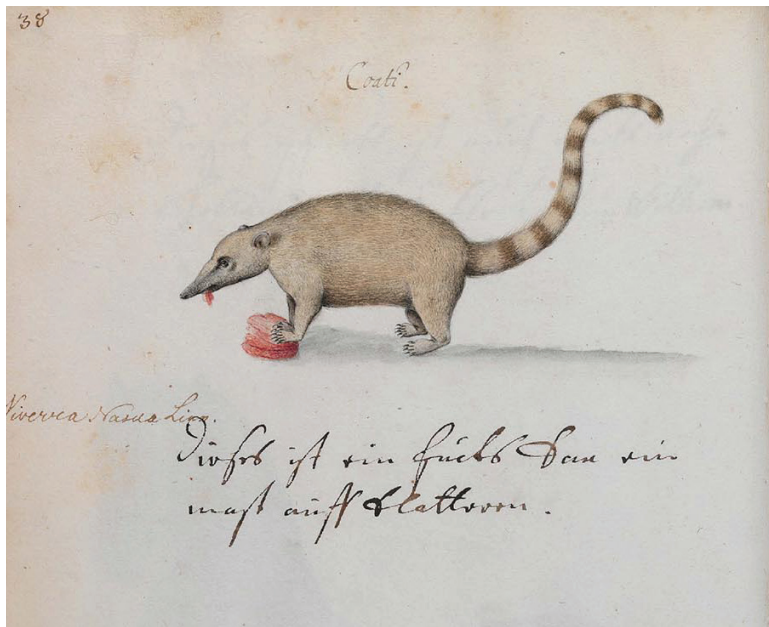 38
Coati.
Viverra Nasua Linn.
Dieses ist ein fucks kan ein
mast auff klatteren.